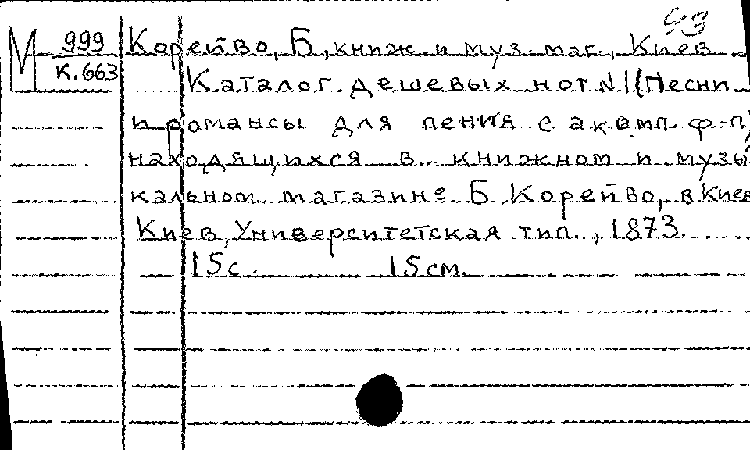 93
М 999 Корейво, Б., книж. и муз. маг., Киев
К.663 Каталог дешевых нот N1 (Песни
и романсы для пения с акомп. ф-п,
находящихся в книжном и музы
кальном магазине Б. Корейво, в Киев
Киев, Университетская тип., 1873.
15с. 15см.